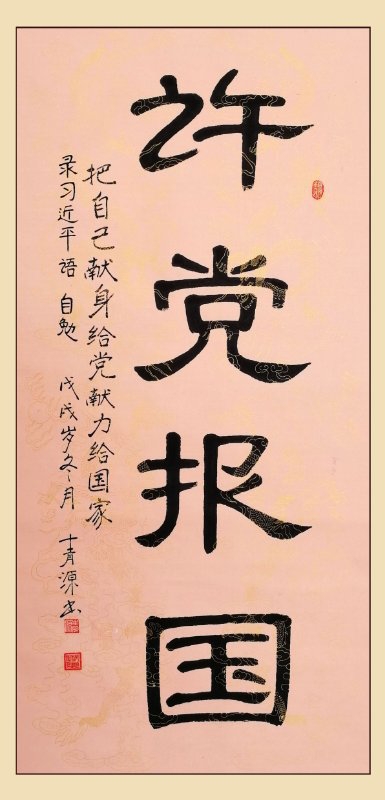 许党报国
把自己献身给党献力给国家
录习近平语 自勉 戊戌岁冬月 青源书